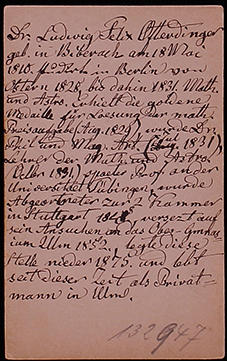 Dr. Ludwig Felix Ofterdinger
geb. in Biberach am 18 Mai
1810. in Berlin von
Ostern 1828, bis dahin 1831. Math.
und Astro. erhielt die goldene
Medaille für Loesung der math.
Preisaufgabe (Aug. 1829), wurde Dr.
Phil. und Mag. Art. 1831,
Lehrer der Math. und Astro.
1831, spaeter Prof. an der
Universitaet Tübingen, wurde
Abgeordneter zur 2 Kammer
in Stuttgart 1848, versezt auf
sein Ansuchen an das Ober-Gymnas-
ium Ulm 1852, legte diese
Stelle nieder 1875 und lebt
seit dieser Zeit als Privat-
mann in Ulm.
132947